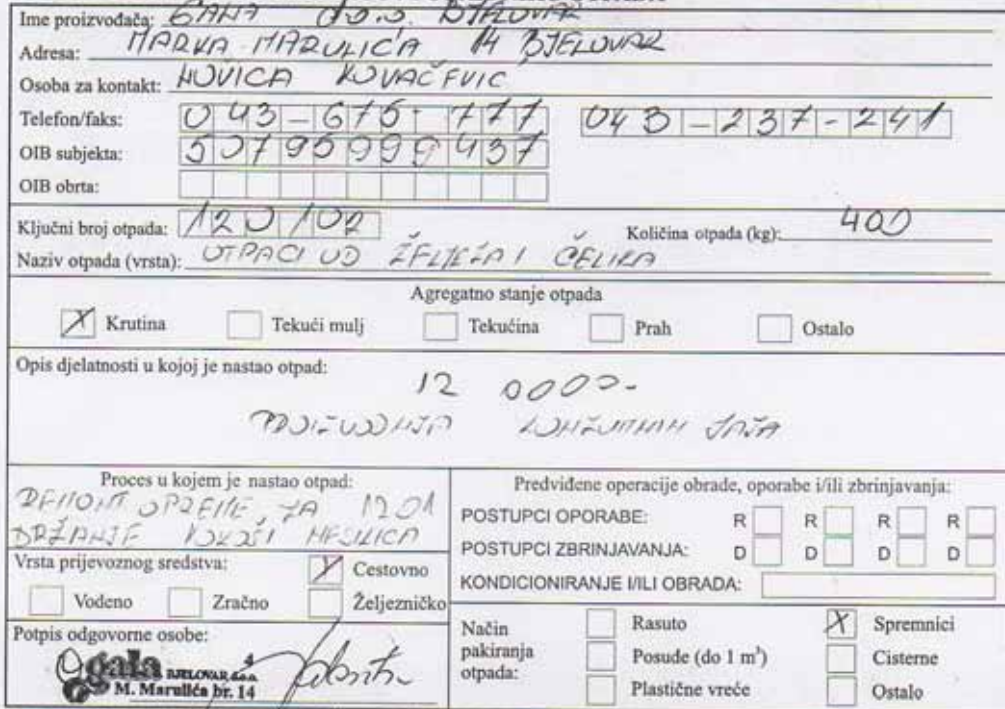 Ime proizvođača: GALA d.o.o. BJELOVAR
Adresa: MARKA MARULIĆA 14 BJELOVAR
Osoba za kontakt: KOVAČEVIC
Telefon/faks: 043-675-777 043-237-241
OIB subjekta: 50795999437
OIB obrta:
Ključni broj otpada: 120102 Količina otpada (kg): 400
Naziv otpada (vrsta): OTPACI OD ŽELJEZA I ČELIKA
Agregatno stanje otpada
X Krutina Tekući mulj Tekućina Prah Ostalo
Opis djelatnosti u kojoj je nastao otpad:
12 0000-
PROIZVODNJA KONZUMNIH JAJA
Proces u kojem je nastao otpad:
DEMONT OPREME ZA 1201
DRŽANJE KOKOŠI NESILICA
Vrsta prijevoznog sredstva: X Cestovno
Vodeno Zračno Željezničko
Potpis odgovorne osobe:
4
gala BJELOVAR d.o.o.
M. Marulića br. 14
Predviđene operacije obrade, oporabe i/ili zbrinjavanja:
POSTUPCI OPORABE: R R R R
POSTUPCI ZBRINJAVANJA: D D D D
KONDICIONIRANJE I/ILI OBRADA:
Način pakiranja otpada:
Rasuto X Spremnici
Posude (do 1 m³) Cisterne
Plastične vreće Ostalo